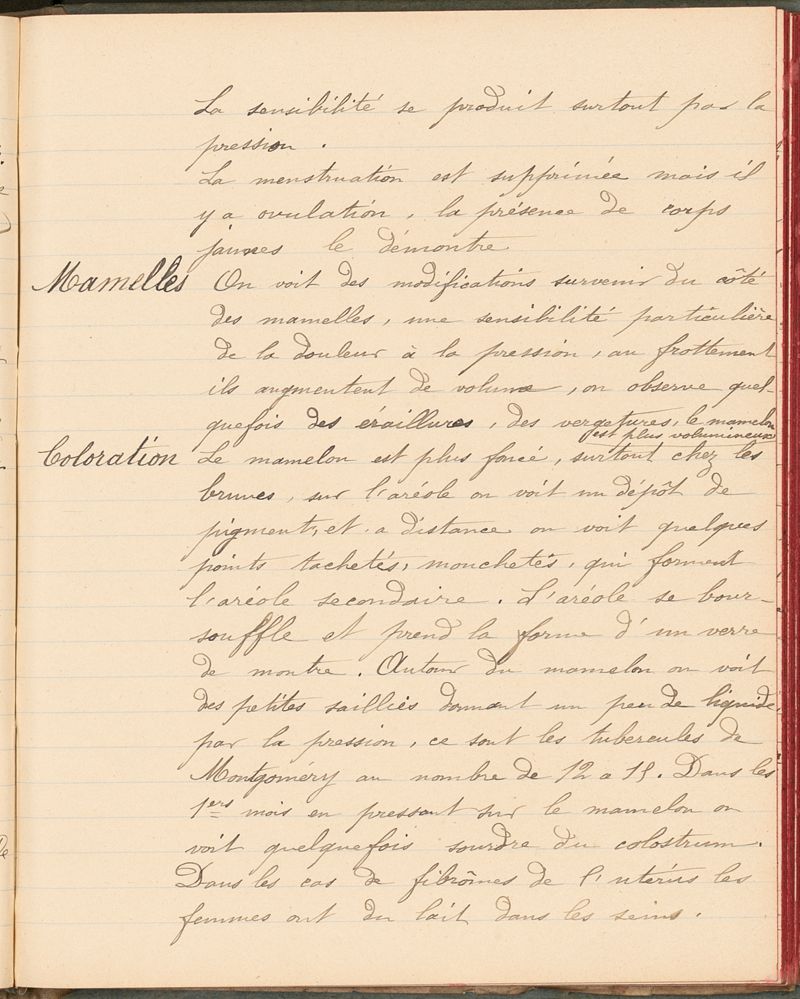 La sensibilité se produit surtout par la
pression.
La menstruation est supprimée mais il
y a ovulation, la présence de corps
jaunes le démontre
Mamelles On voit des modifications survenir du côté
des mamelles, une sensibilité particulière
de la douleur à la pression, au frottement
ils augmentent de volume, on observe quel-
quefois des éraillures, des vergetures, le mamelon
est plus volumineux
Coloration Le mamelon est plus foncé, surtout chez les
brunes, sur l'aréole on voit un dépôt de
pigment, et a distance on voit quelques
points tachetés, mouchetés, qui forment
l'aréole secondaire. L'aréole se bour-
souffle et prend la forme d'un verre
de montre. Autour du mamelon on voit
des petites saillies donnant un peu de liquide,
par la pression, ce sont les tubercules de
Montgoméry au nombre de 12 a 15. Dans les
1ers mois en pressant sur le mamelon on
voit quelquefois sourdre du colostrum.
Dans les cas de fibrômes de l'utérus les
femmes ont du lait dans les seins.